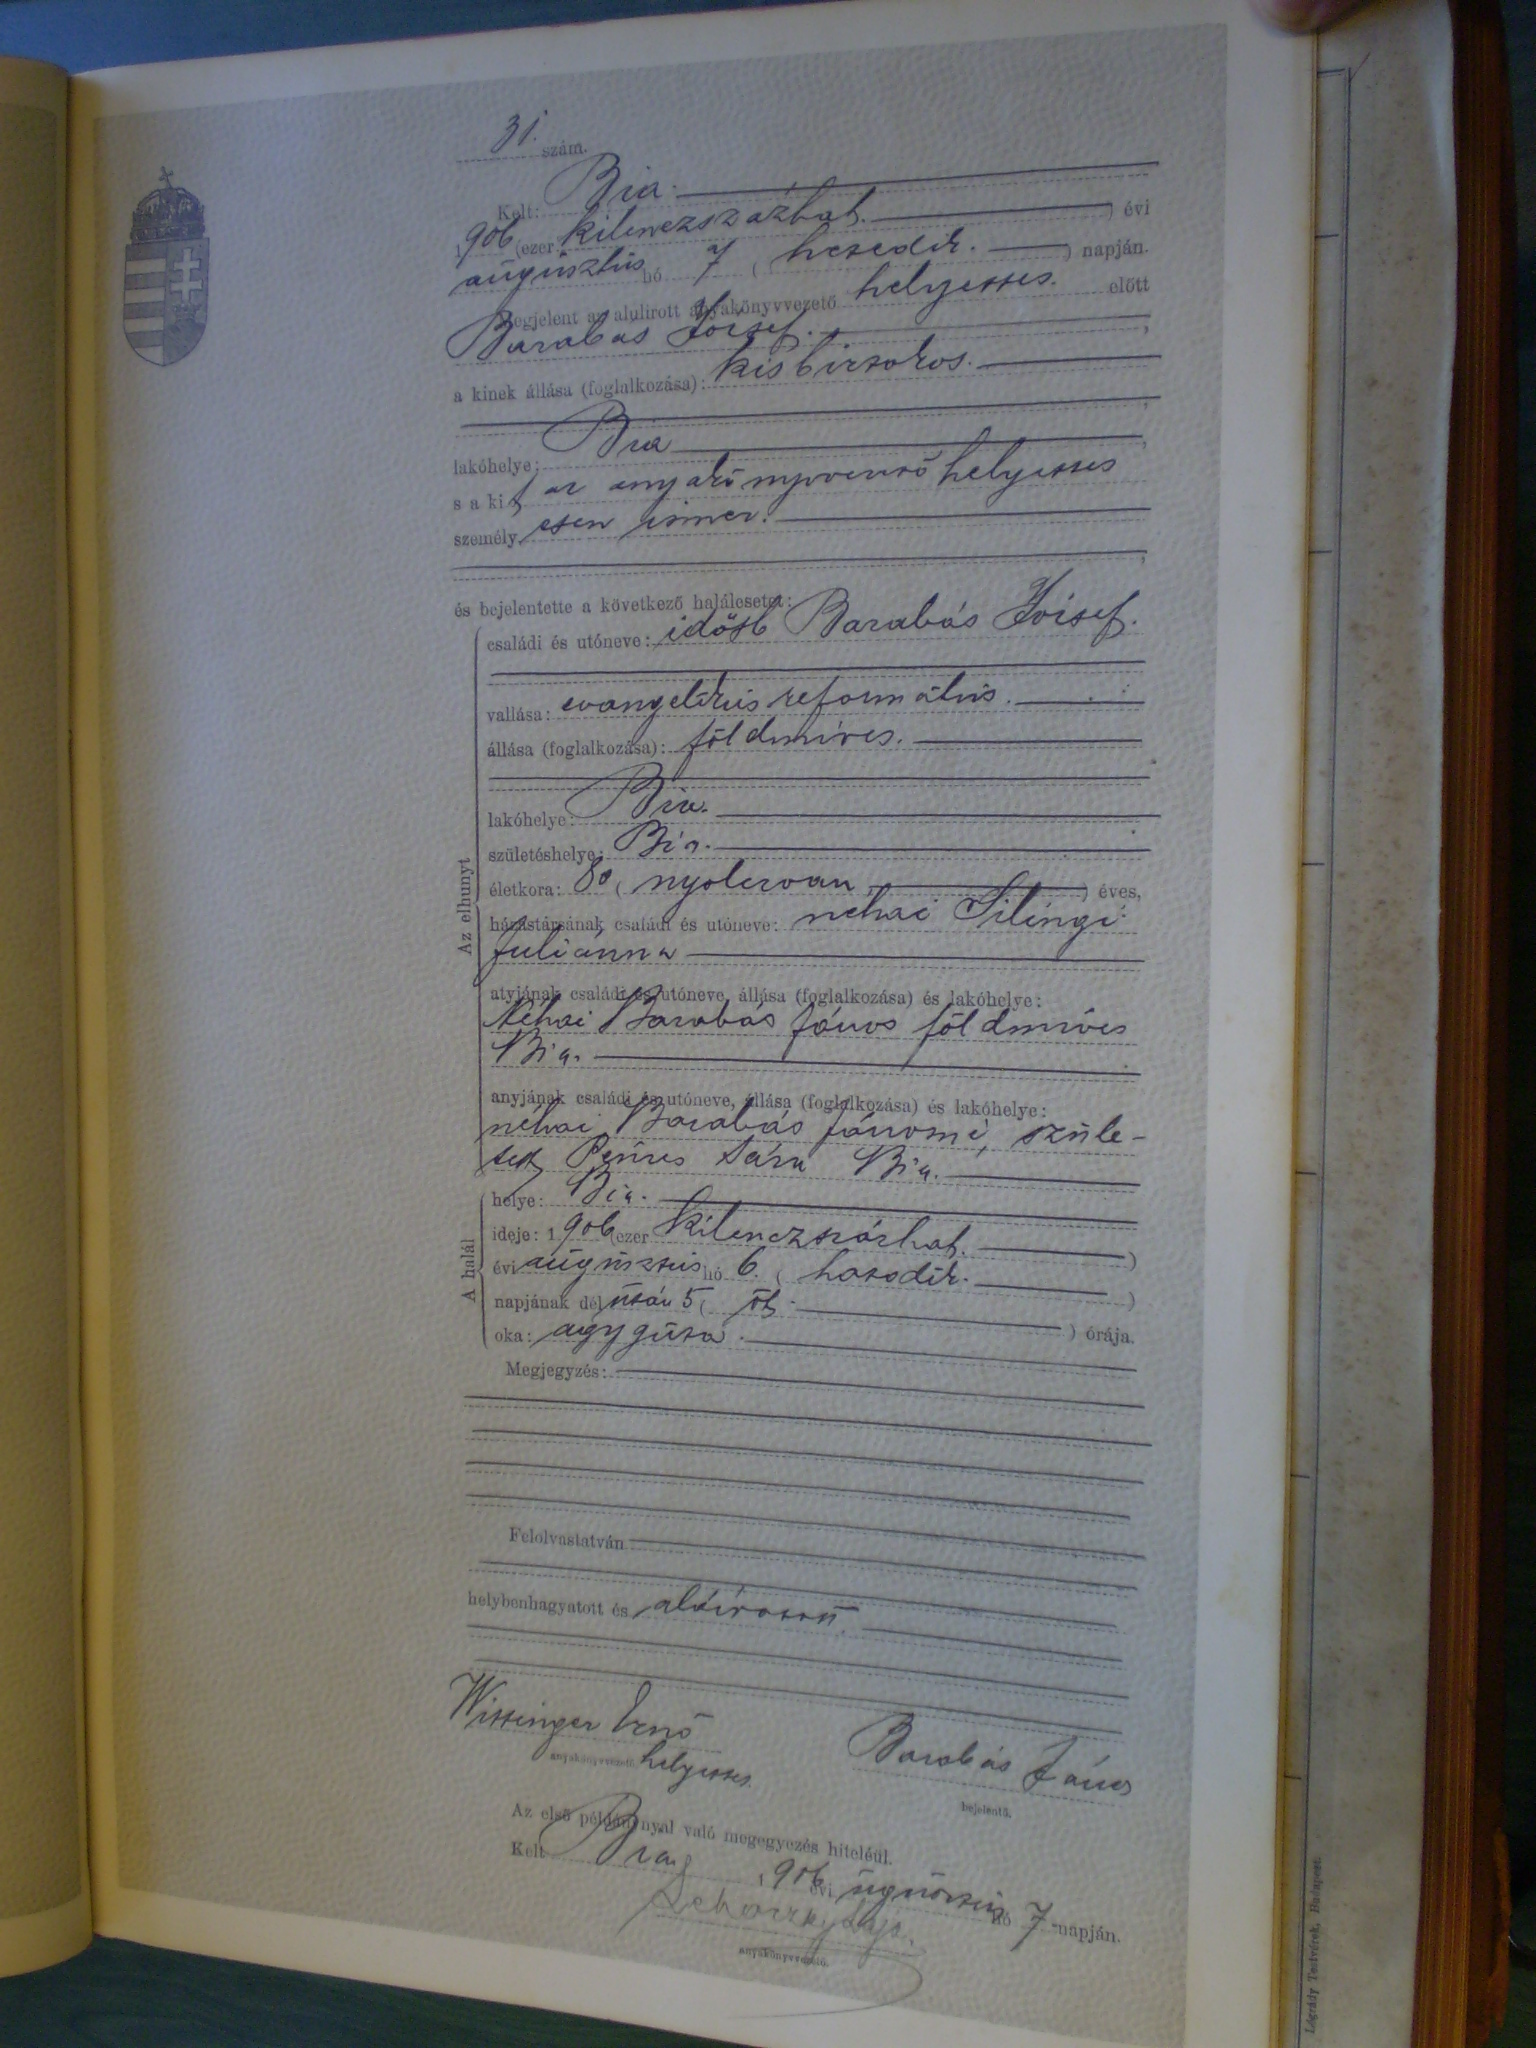 31. szám.
Kelt: Bia.
1906 (ezer kilenczszázhat.) évi
augusztus hó 7 (hetedik.) napján.
Megjelent az alulirott anyakönyvvezető helyettes. előtt
Barabás József.,
a kinek állása (foglalkozása): kisbirtokos.
,
lakóhelye: Bia,
s a kit az anyakönyvvezető helyettes
személyesen ismer.
,
és bejelentette a következő halálesetet:
családi és utóneve: idősb Barabás József.
vallása: evangelikus református.
állása (foglalkozása): földmíves.
lakóhelye: Bia.
születéshelye: Bia.
életkora: 80 (nyolczvan) éves,
Az elhunyt
házastársának családi és utóneve: néhai Silingi
Juliánna
atyjának családi és utóneve, állása (foglalkozása) és lakóhelye:
Néhai Barabás János földmíves
Bia.
anyjának családi és utóneve, állása (foglalkozása) és lakóhelye:
néhai Barabás Jánosné, szüle-
tett Sára Bia.
A halál
helye: Bia.
ideje: 1906 (ezer kilenczszázhat.)
évi augusztus hó 6. (hatodik.)
napjának dél után 5 (öt) órája.
oka: agyguta.
Megjegyzés:
Felolvastatván
helybenhagyatott és aláiratott.
Wissinger Ernő
anyakönyvvezető helyettes.
Barabás János
bejelentő.
Az első példánynyal való megegyezés hiteléül.
Kelt Bia, 1906 évi augusztus hó 7 -napján.
anyakönyvvezető.
Légrády Testvérek, Budapest.